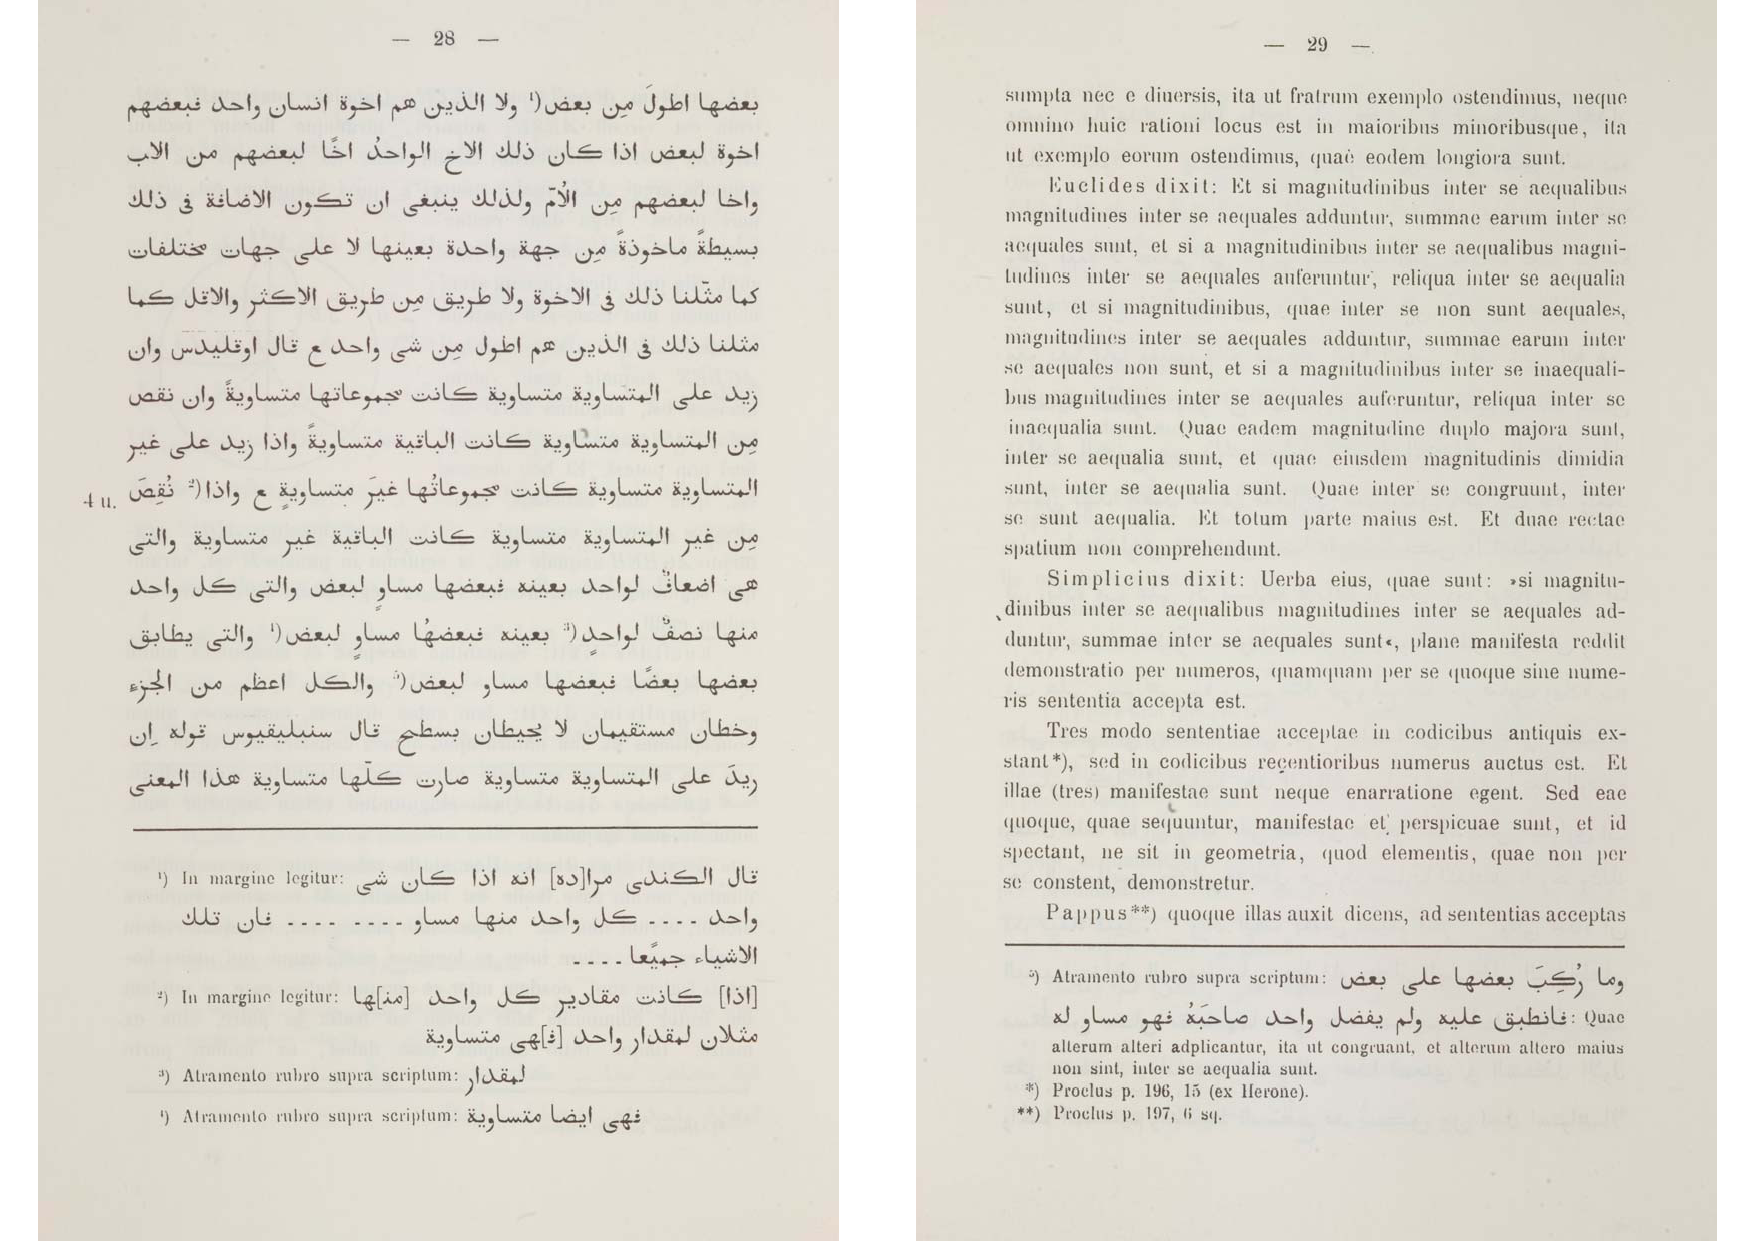 — 28 —
بعضها اطولَ مِن بعض(¹ ولا الذين هم اخوة انسان واحد فبعضهم
اخوة لبعض اذا كان ذلك الاخ الواحدُ اخًا لبعضهم من الاب
واخا لبعضهم مِن الاُمّ ولذلك ينبغى ان تكون الاضافة فى ذلك
بسيطةً ماخوذةً مِن جهة واحدة بعينها لا على جهات مختلفات
كما مثّلنا ذلك فى الاخوة ولا طريق مِن طريق الاكثر والاقل كما
مثلنا ذلك فى الذين هم اطول مِن شى واحد ع قال اوقليدس وان
زيد على المتساوية متساوية كانت مجموعاتها متساويةً وان نقص
مِن المتساوية متساوية كانت الباقية متساويةً واذا زيد على غير
المتساوية متساوية كانت مجموعاتُها غيرَ متساويةٍ ع واذا(² نُقِصَ
4 u.
مِن غير المتساوية متساوية كانت الباقية غير متساوية والتى
هى اضعافٌ لواحد بعينه فبعضها مساوٍ لبعض والتى كل واحد
منها نصفٌ لواحدٍ(³ بعينه فبعضهُا مساوٍ لبعض(⁴ والتى يطابق
بعضها بعضًا فبعضها مساو لبعض(⁵ والكل اعظم من الجزء
وخطان مستقيمان لا يحيطان بسطح قال سنبليقيوس قوله اِن
زيدَ على المتساوية متساوية صارت كلّها متساوية هذا المعنى
¹) In margine legitur: قال الكندى مرا[ده] انه اذا كان شى
واحد .... كل واحد منها مساو .... .... فان تلك
الاشياء جميًعا ....
²) In margine legitur: [اذا] كانت مقادير كل واحد [من]ها
مثلان لمقدار واحد [ف]هى متساوية
³) Atramento rubro supra scriptum: لمقدار
⁴) Atramento rubro supra scriptum: فهى ايضا متساوية
— 29 —
sumpta nec e diuersis, ita ut fratrum exemplo ostendimus, neque
omnino huic rationi locus est in maioribus minoribusque, ita
ut exemplo eorum ostendimus, quae eodem longiora sunt.
Euclides dixit: Et si magnitudinibus inter se aequalibus
magnitudines inter se aequales adduntur, summae earum inter se
aequales sunt, et si a magnitudinibus inter se aequalibus magni-
tudines inter se aequales auferuntur, reliqua inter se aequalia
sunt, et si magnitudinibus, quae inter se non sunt aequales,
magnitudines inter se aequales adduntur, summae earum inter
se aequales non sunt, et si a magnitudinibus inter se inaequali-
bus magnitudines inter se aequales auferuntur, reliqua inter se
inaequalia sunt. Quae eadem magnitudine duplo majora sunt,
inter se aequalia sunt, et quae eiusdem magnitudinis dimidia
sunt, inter se aequalia sunt. Quae inter se congruunt, inter
se sunt aequalia. Et totum parte maius est. Et duae rectae
spatium non comprehendunt.
Simplicius dixit: Uerba eius, quae sunt: »si magnitu-
dinibus inter se aequalibus magnitudines inter se aequales ad-
duntur, summae inter se aequales sunt«, plane manifesta reddit
demonstratio per numeros, quamquam per se quoque sine nume-
ris sententia accepta est.
Tres modo sententiae acceptae in codicibus antiquis ex-
stant*), sed in codicibus recentioribus numerus auctus est. Et
illae (tres) manifestae sunt neque enarratione egent. Sed eae
quoque, quae sequuntur, manifestae et perspicuae sunt, et id
spectant, ne sit in geometria, quod elementis, quae non per
se constent, demonstretur.
Pappus**) quoque illas auxit dicens, ad sententias acceptas
⁵) Atramento rubro supra scriptum: وما رُكِبَ بعضها على بعض
فانطبق عليه ولم يفضل واحد صاحبَهُ فهو مساو له: Quae
alterum alteri adplicantur, ita ut congruant, et alterum altero maius
non sint, inter se aequalia sunt.
*) Proclus p. 196, 15 (ex Herone).
**) Proclus p. 197, 6 sq.